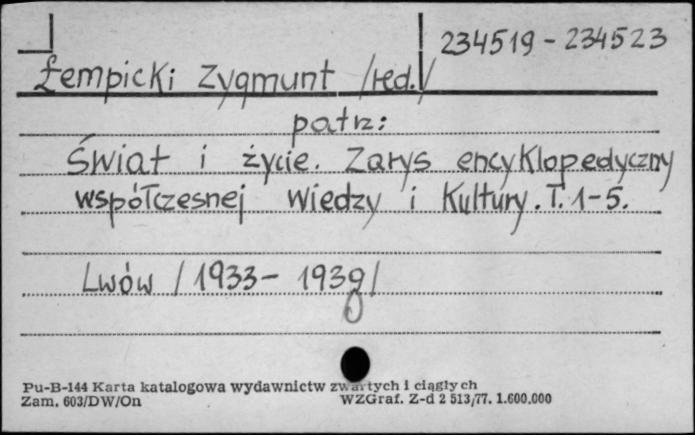 234519 - 234523
Łempicki Zygmunt /red./
patrz:
Świat i życie. Zarys encyklopedyczny
współczesnej wiedzy i kultury. T. 1-5.
Lwów /1933- 1939/
Pu-B-144 Karta katalogowa wydawnictw zwartych i ciągłych
Zam. 603/DW/On WZGraf. Z-d 2 513/77. 1.600.000